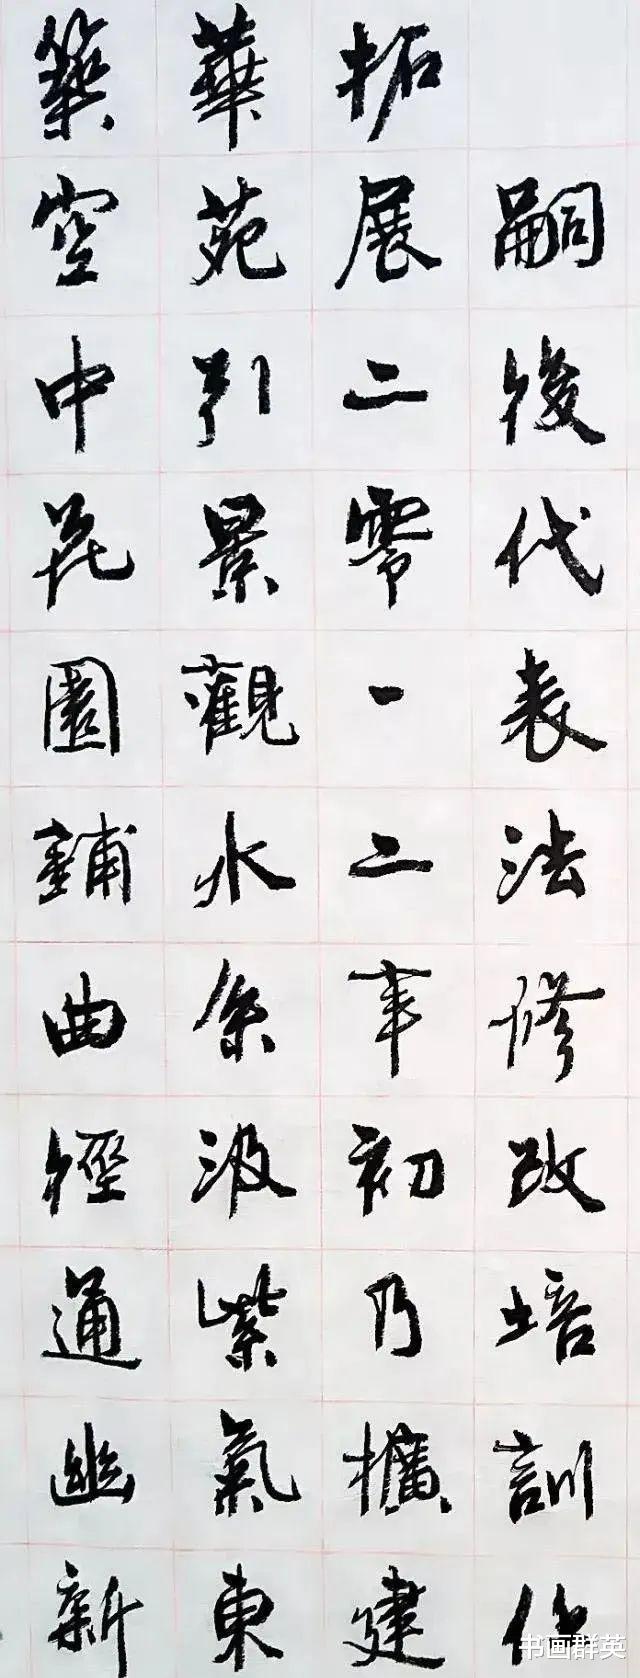 嗣後代表法修改培訓
拓展二零一二年初乃擴建
華苑引景觀水系汲紫氣東
築空中花園鋪曲徑通幽新
书画群英